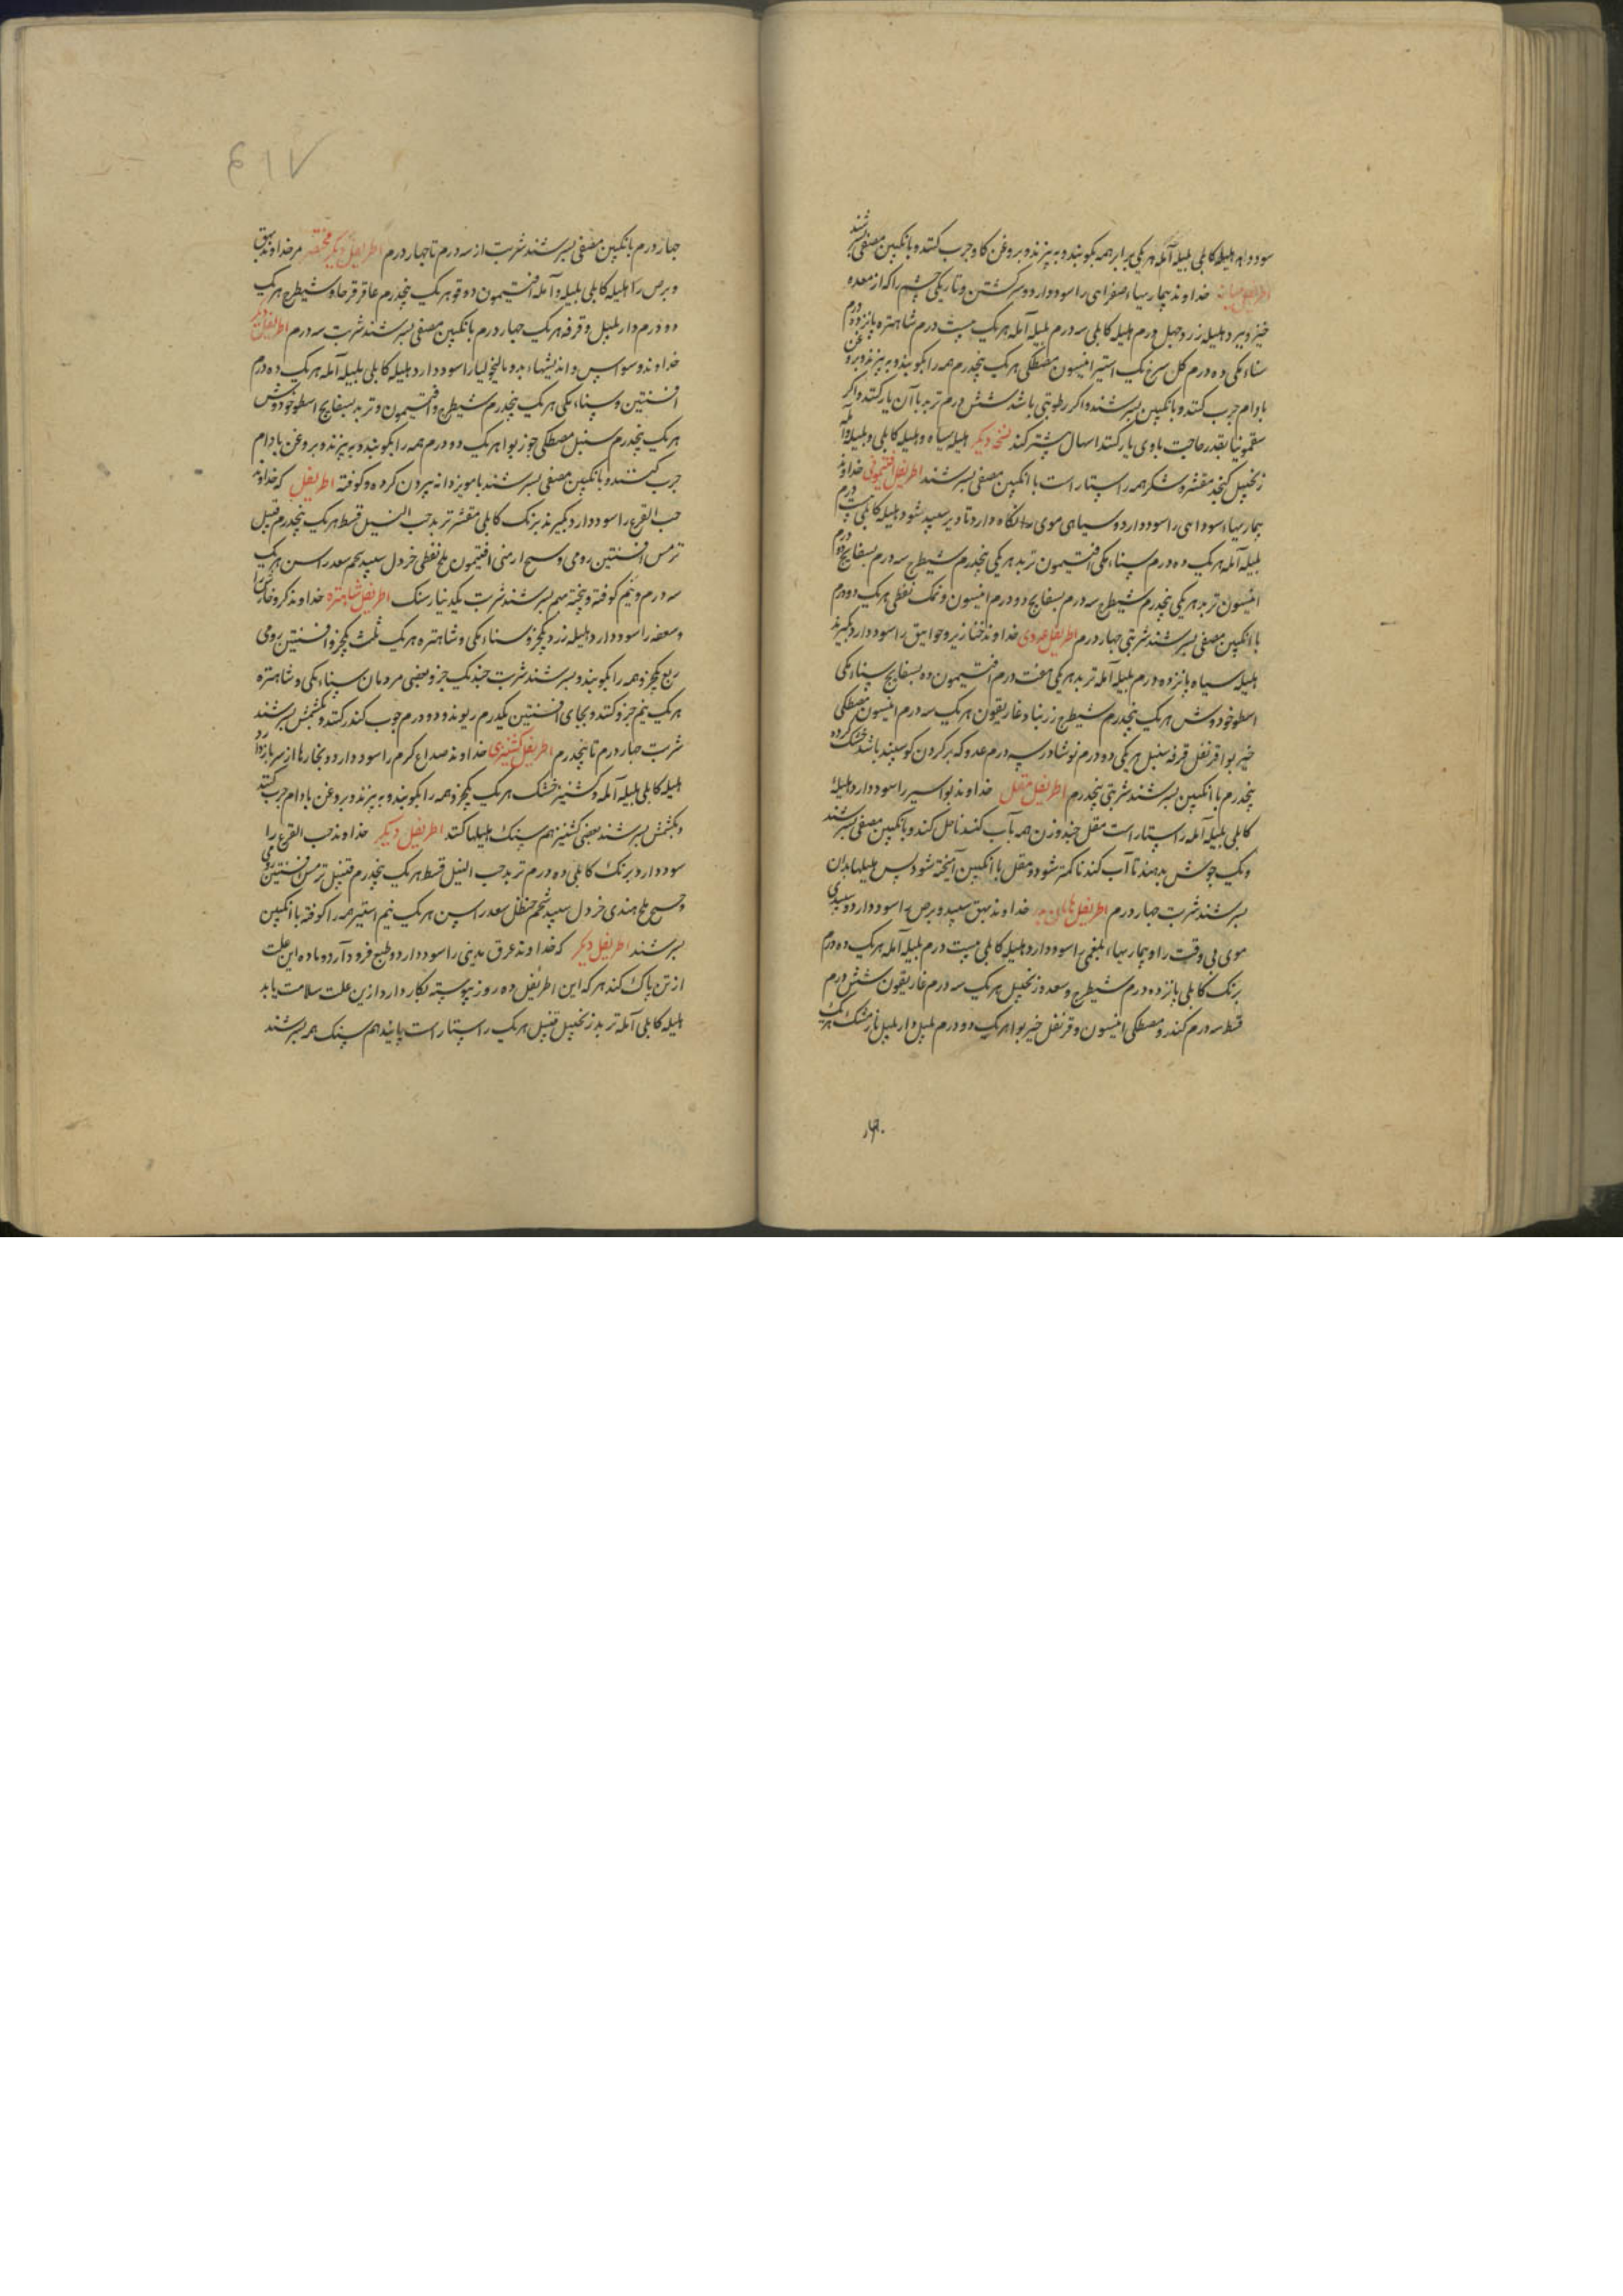 سود دارد هلیله کابلی بلیله آمله هر یکی برابر همه بکوبند و به بیزند و بروغن کاو چرب کنند و بانکبین مصفی بسرشند
خداوند بیماریهاء صفرایی را سود دارد و سرکشتن و تاریکی چشم را که از معده
خیزد بیرد هلیله زرد چهل درم هلیله کابلی سه درم بلیله آمله هر یک بیست درم شاهتره پانزده درم
سناء مکی ده درم کل سرخ یک استیر انیسون مصطکی هر یک پنجدرم همه را بکوبند و به بیزند و بروغن
بادام چرب کنند و بانکبین بسرشند و اکر رطوبتی باشد شش درم تربد با آن یار کنند و اکر
سقمونیا بقدر حاجت باوی یار کنند اسهال بیشتر کند نسخه دیکر هلیله سیاه و هلیله کابلی و بلیله و آمله
زنجبیل کنجد مقشر و شکر همه راستاراست با انکبین مصفی بسرشند اطریفل افتیمونی خداوند
بیماریهاء سودایی را سود دارد و سیاهی موی را نکاه دارد تا دیر سپید شود هلیله کابلی بیست درم
بلیله آمله هر یک ده درم سناء مکی افتیمون تربد هر یکی پنجدرم شیطرج سه درم بسفایج دو درم
انیسون تربد هر یکی پنجدرم شیطرج سه درم بسفایج دو درم انیسون و نمک نفطی هر یک دو درم
با انکبین مصفی بسرشند شربتی چهار درم اطریفل غددی خداوند خنازیر و خوانیق را سود دارد بکیرند
هلیله سیاه پانزده درم بلیله آمله تربد هر یکی هفت درم افتیمون ده بسفایج سناء مکی
اسطوخودوش هر یک پنجدرم شیطرج زرنباد غاریقون هر یک سه درم انیسون مصطکی
خیربوا قرنفل قرفه سنبل هر یکی دو درم نوشادر سه درم غدد که بر کردن کوسپند باشد خشک کرده
پنجدرم با انکبین بسرشند شربتی پنجدرم اطریفل مقل خداوند بواسیر را سود دارد هلیله
کابلی بلیله آمله راستاراست مقل چند وزن همه بآب کندنا حل کنند و بانکبین مصفی بسرشند
و یک جوش بدهند تا آب کندنا کمتر شود و مقل با انکبین آمیخته شود پس هلیلها بدان
بسرشند شربت چهار درم اطریفل خداوند بهق سپید و برص را سود دارد و سپیدی
موی بی وقت را و بیماریهاء بلغمی را سود دارد هلیله کابلی بیست درم بلیله آمله هر یک ده درم
برنک کابلی پانزده درم شیطرج و سعد و زنجبیل هر یک سه درم غاریقون شش درم
قسط سه درم کندر و مصطکی انیسون و قرنفل خیربوا هر یک دو درم پلپل دارپلپل نارمشک هر یک
۶۱۷
چهار درم بانکبین مصفی بسرشند شربت از سه درم تا چهار درم اطریفل دیکر مختصر مر خداوند بهق
و برص را هلیله کابلی بلیله و آمله افتیمون دوقو هر یک پنجدرم عاقرقرحا و شیطرج هر یک
دو درم دارپلپل و قرفه هر یک چهار درم بانکبین مصفی بسرشند شربت سه درم اطریفل دیکر
خداوند وسواس و اندیشهاء بد و مالیخولیا را سود دارد هلیله کابلی بلیله آمله هر یک ده درم
افسنتین و سناء مکی هر یک پنجدرم شیطرج و افتیمون و تربد بسفایج اسطوخودوش
هر یک پنجدرم سنبل مصطکی جوزبوا هر یک دو درم همه را بکوبند و به بیزند و بروغن بادام
چرب کنند و بانکبین مصفی بسرشند یا مویز دانه بیرون کرده و کوفته اطریفل که خداوند
حب القرع را سود دارد بکیرند برنک کابلی مقشر تربد حب النیل قسط هر یک پنجدرم قنبیل
ترمس افسنتین رومی و سح ارمنی افتیمون ملح نفطی خردل سپید شحم سعد راسن هر یک
سه درم و نیم کوفته و پخته بهم بسرشند شربت یکدینار سنک اطریفل شاهتره خداوند کر و خارش را
و سعفه را سود دارد هلیله زرد یکجزو سناء مکی و شاهتره هر یک ثلث یکجزو افسنتین رومی
ربع یکجزو همه را بکوبند و بسرشند شربت چند یک جوز و بعضی مردمان سناء مکی و شاهتره
هر یک نیم جزو کنند و بجای افسنتین یکدرم ریوند و دو درم جوب کندر کنند و بکشمش بسرشند
شربت چهار درم تا پنجدرم اطریفل کشنیزی خداوند صداع کرم را سود دارد و بخارها از سر باز دارد
هلیله کابلی بلیله آمله و کشنیز خشک هر یک یکجزو همه را بکوبند و به بیزند و بروغن بادام چرب کنند
و بکشمش بسرشند بعضی کشنیز هم سنک هلیلها کنند اطریفل دیکر خداوند حب القرع را
سود دارد برنک کابلی ده درم تربد حب النیل قسط هر یک پنجدرم قنبیل ترمس افسنتین رومی
و سح ملح هندی خردل سپید شحم حنظل سعد راسن هر یک نیم استیر همه را کوفته با انکبین
بسرشند اطریفل دیکر که خداوند عرق مدینی را سود دارد و طبع فرود آرد و ماده این علت
از تن پاک کند هر که این اطریفل ده روز پیوسته بکار دارد از این علت سلامت یابد
هلیله کابلی آمله تربد زنجبیل قنبیل هر یک راستاراست پانید هم سنک همه بسرشند